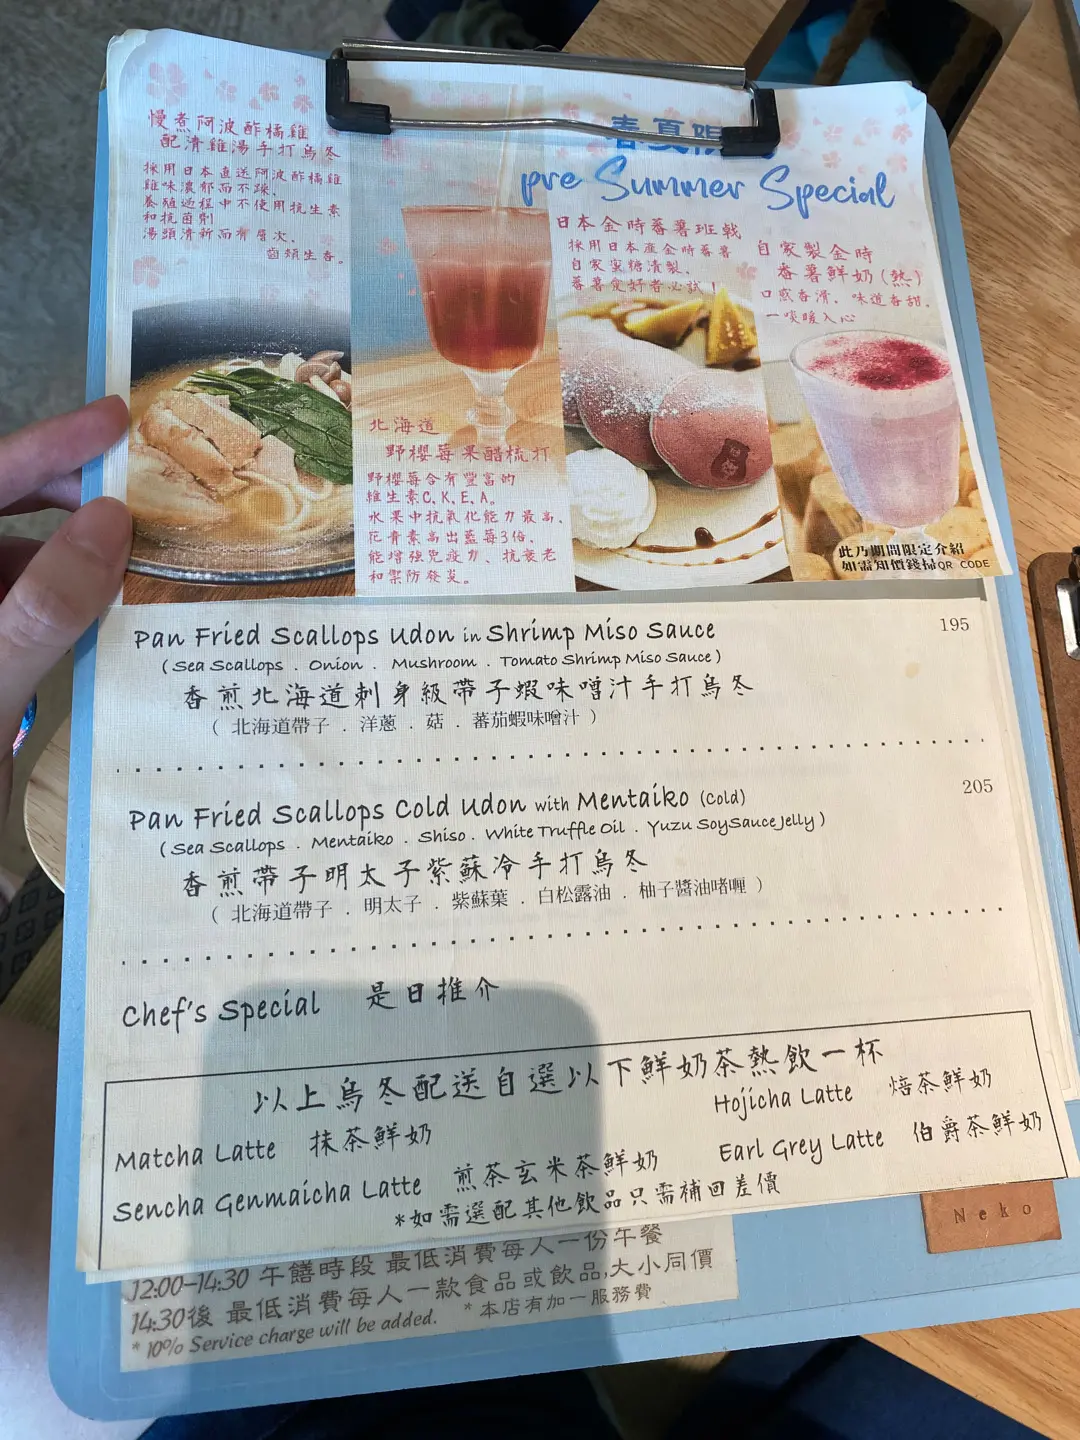 慢煮阿波酢橘雞
配清雞湯手打烏冬
採用日本直送阿波酢橘雞
雞味濃郁而不躁、
養殖過程中不使用抗生素
和抗菌劑
湯頭清新而有層次、
齒頰生香。
春夏限
pre Summer Special
北海道
野櫻莓果醋梳打
野櫻莓含有豐富的
維生素C.K.E.A。
水果中抗氧化能力最高、
花青素高出藍莓3倍、
能增強免疫力、抗衰老
和禦防發炎。
日本金時蕃薯班戟
採用日本產金時蕃薯
自家蜜糖漬製、
蕃薯食好者必試！
自家製金時
蕃薯鮮奶(熱)
口感香滑、味道香甜、
一啖暖入心
此乃期間限定介紹
如需知價錢掃QR CODE
Pan Fried Scallops Udon in Shrimp Miso Sauce 195
(Sea Scallops . Onion . Mushroom . Tomato Shrimp Miso Sauce)
香煎北海道刺身級帶子蝦味噌汁手打烏冬
( 北海道帶子 . 洋蔥 . 菇 . 蕃茄蝦味噌汁 )
Pan Fried Scallops Cold Udon with Mentaiko (Cold) 205
(Sea Scallops . Mentaiko . Shiso . White Truffle Oil . Yuzu SoySauceJelly)
香煎帶子明太子紫蘇冷手打烏冬
( 北海道帶子 . 明太子 . 紫蘇葉 . 白松露油 . 柚子醬油啫喱 )
Chef's Special 是日推介
以上烏冬配送自選以下鮮奶茶熱飲一杯
Matcha Latte 抹茶鮮奶 Hojicha Latte 焙茶鮮奶
Sencha Genmaicha Latte 煎茶玄米茶鮮奶 Earl Grey Latte 伯爵茶鮮奶
*如需選配其他飲品只需補回差價
Neko
12:00-14:30 午膳時段 最低消費每人一份午餐
14:30後 最低消費每人一款食品或飲品,大小同價
* 10% Service charge will be added. * 本店有加一服務費